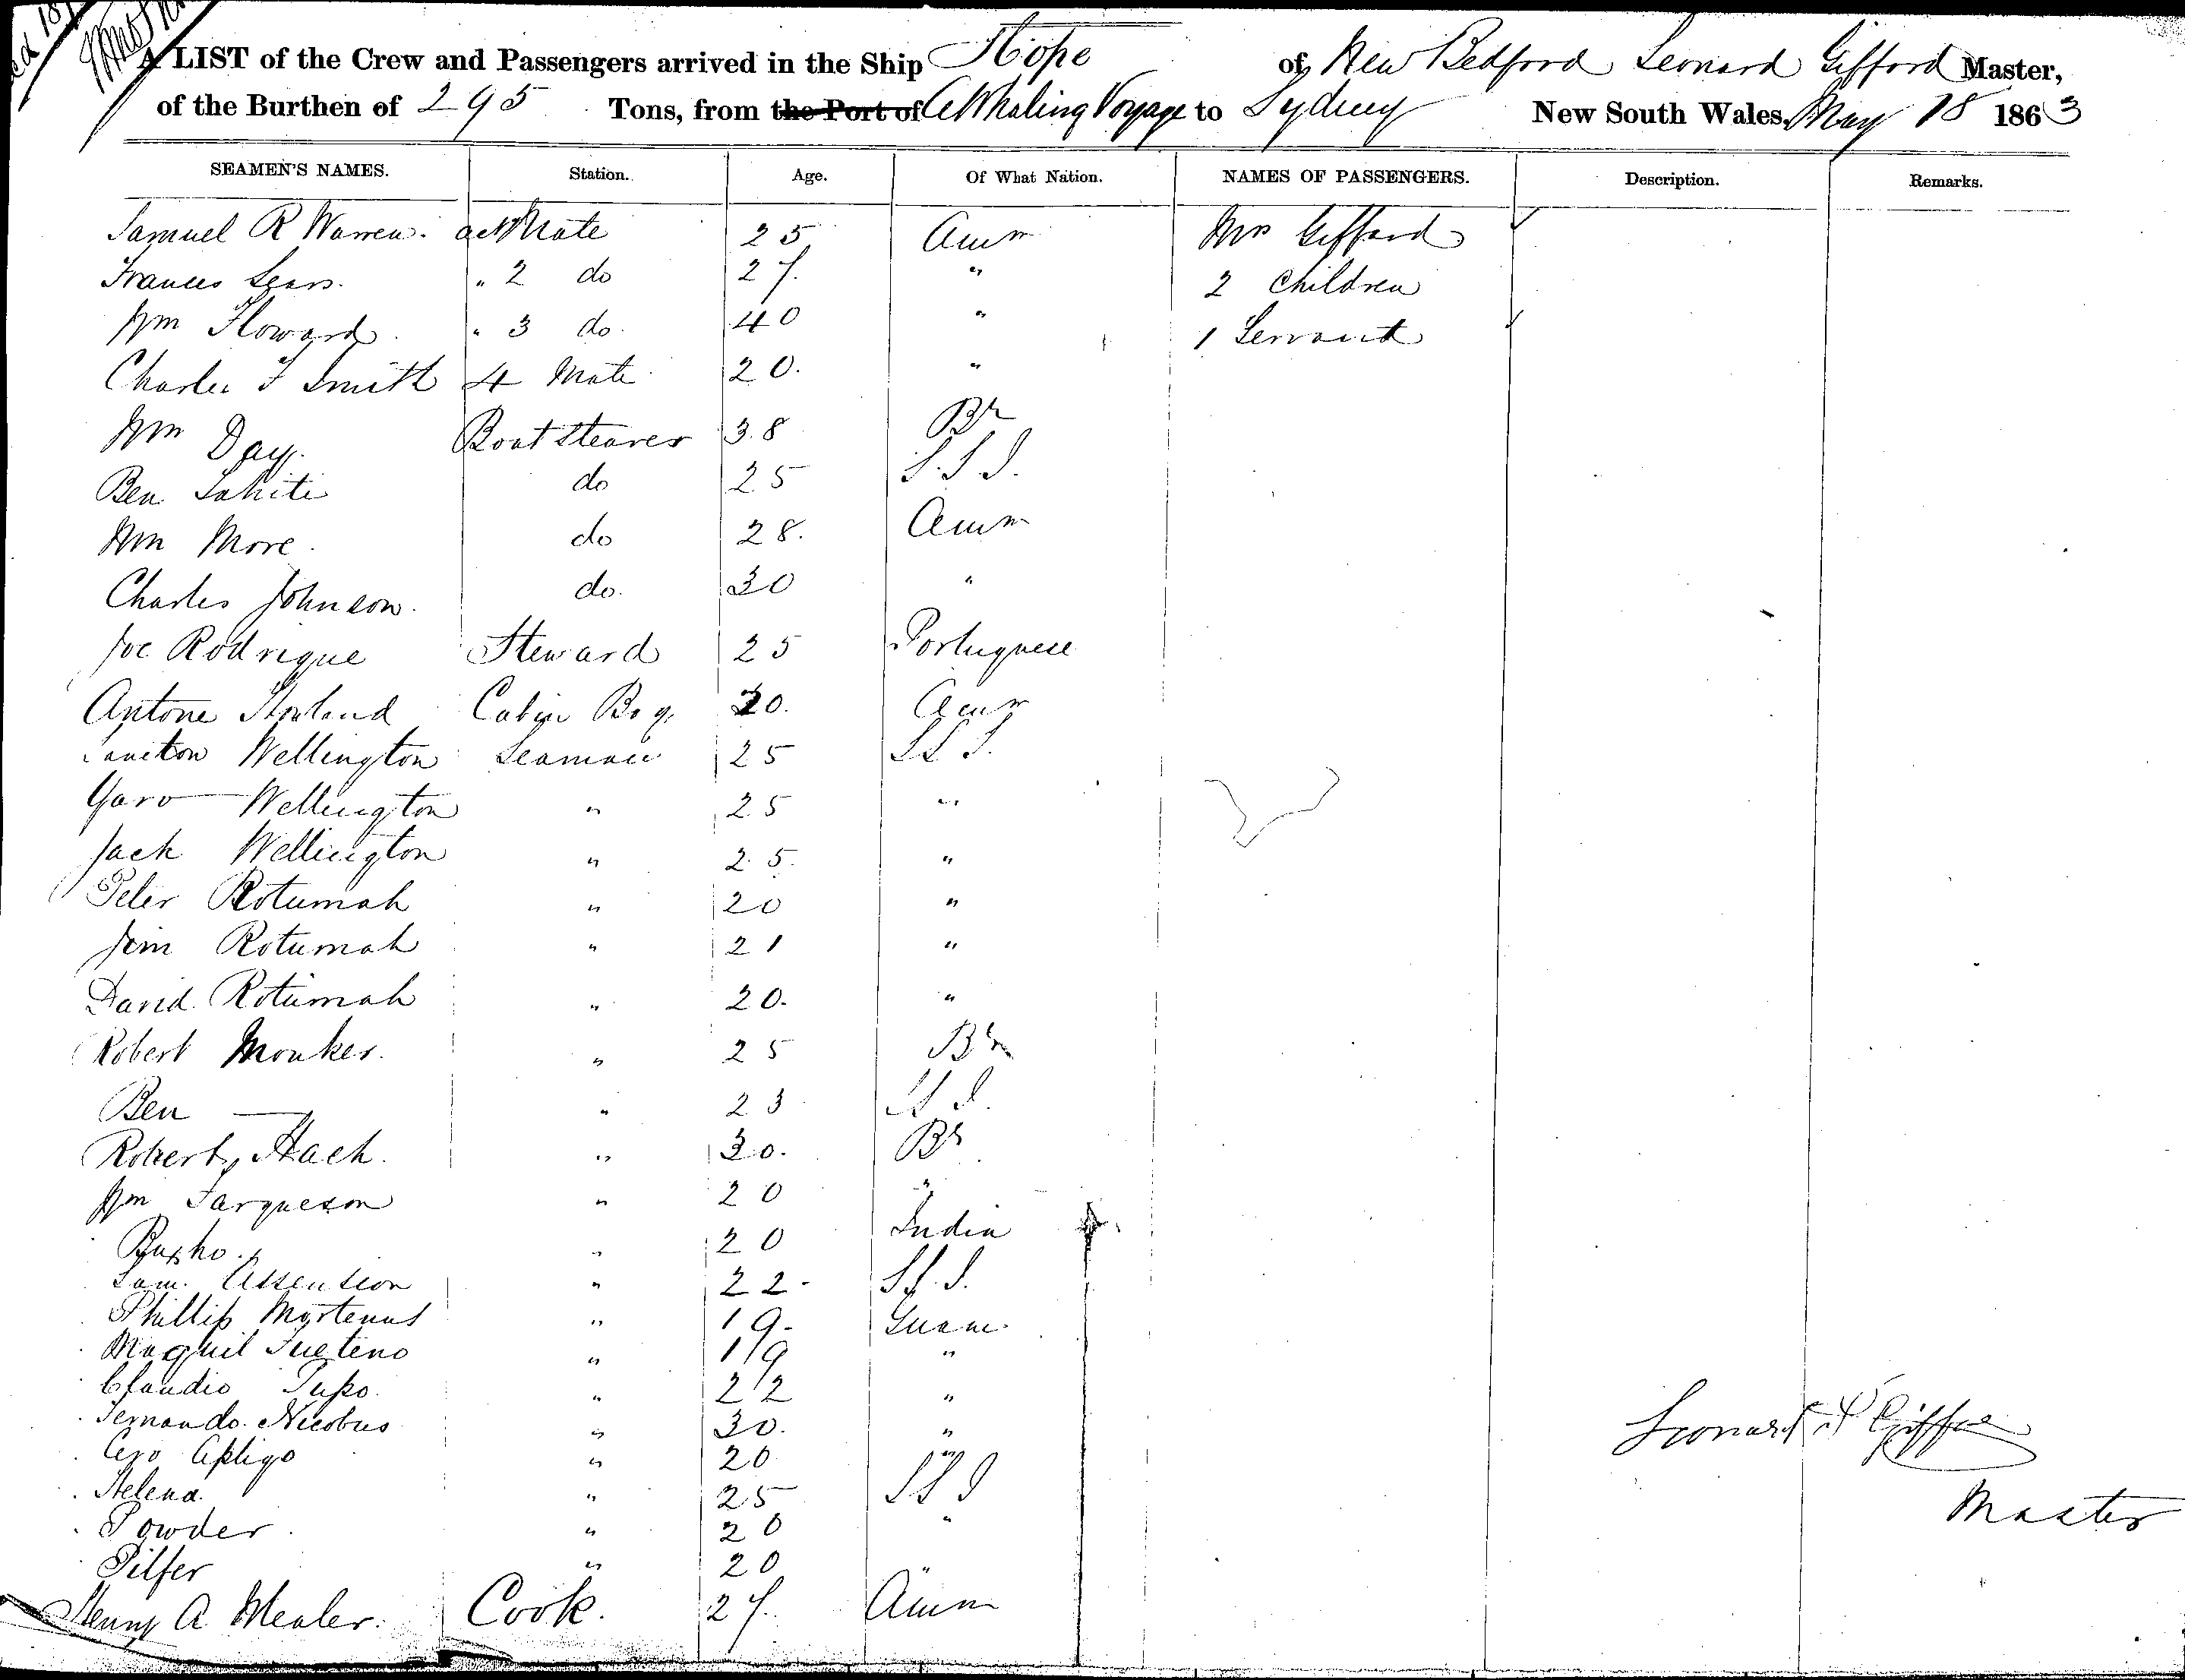 A LIST of the Crew and Passengers arrived in the Ship Hope of New Bedford Leonard Gifford Master,
of the Burthen of 295 Tons, from the Port of A Whaling Voyage to Sydney New South Wales, May 18 1863
SEAMEN'S NAMES. Station. Age. Of What Nation. NAMES OF PASSENGERS. Description. Remarks.
Samuel R Warren. Mate 25 Amn Mrs Gifford
Frances Sears. " 2 do 27. " 2 Children
Wm Howard. " 3 do. 40 " 1 Servant
Charles F Smith 4 Mate 20. "
Wm Day. Boatstearer 38 Br
Ben Tahiti do 25 S.S.I.
Wm More. do 28. Amn
Charles Johnson. do. 30 "
Joe Rodrigue Steward 25 Portuguese
Antone Cabin Boy. 20. Amn
Wellington Seaman 25 S S I.
Garo Wellington " 25 "
Jack Wellington " 25. "
Peter Rotumah " 20 "
Jim Rotumah " 21 "
David Rotumah " 20. "
Robert Monker. " 25 Br
Ben — " 23 S I.
Robert Hach. " 30. Br
Wm Farqueson " 20 "
" 20 India
Sam. Assention " 22- S S.I.
Phillip " 19- Guam.
" 19 "
Claudio " 22 "
Fernando " 30. "
" 20 "
Helena " 25 S S I
Powder. " 20 "
Pilfer " 20 "
Henry A Mealer. Cook. 27. Amn
Leonard S Gifford
Master